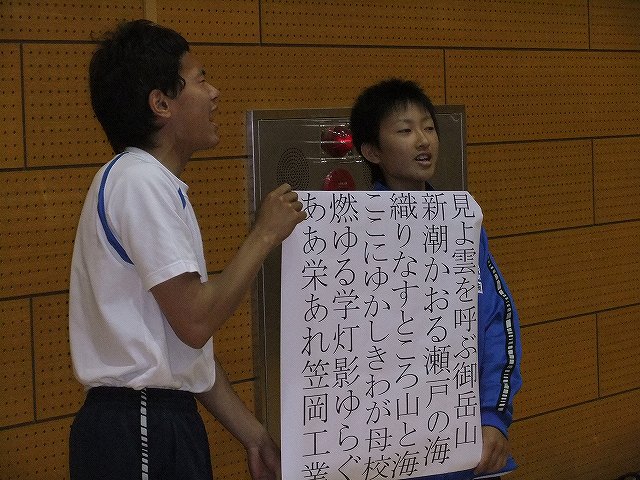 見よ雲を呼ぶ御岳山
新潮かおる瀬戸の海
織りなすところ山と海
ここにゆかしきわが母校
燃ゆる学灯影ゆらぐ
ああ栄あれ笠岡工業